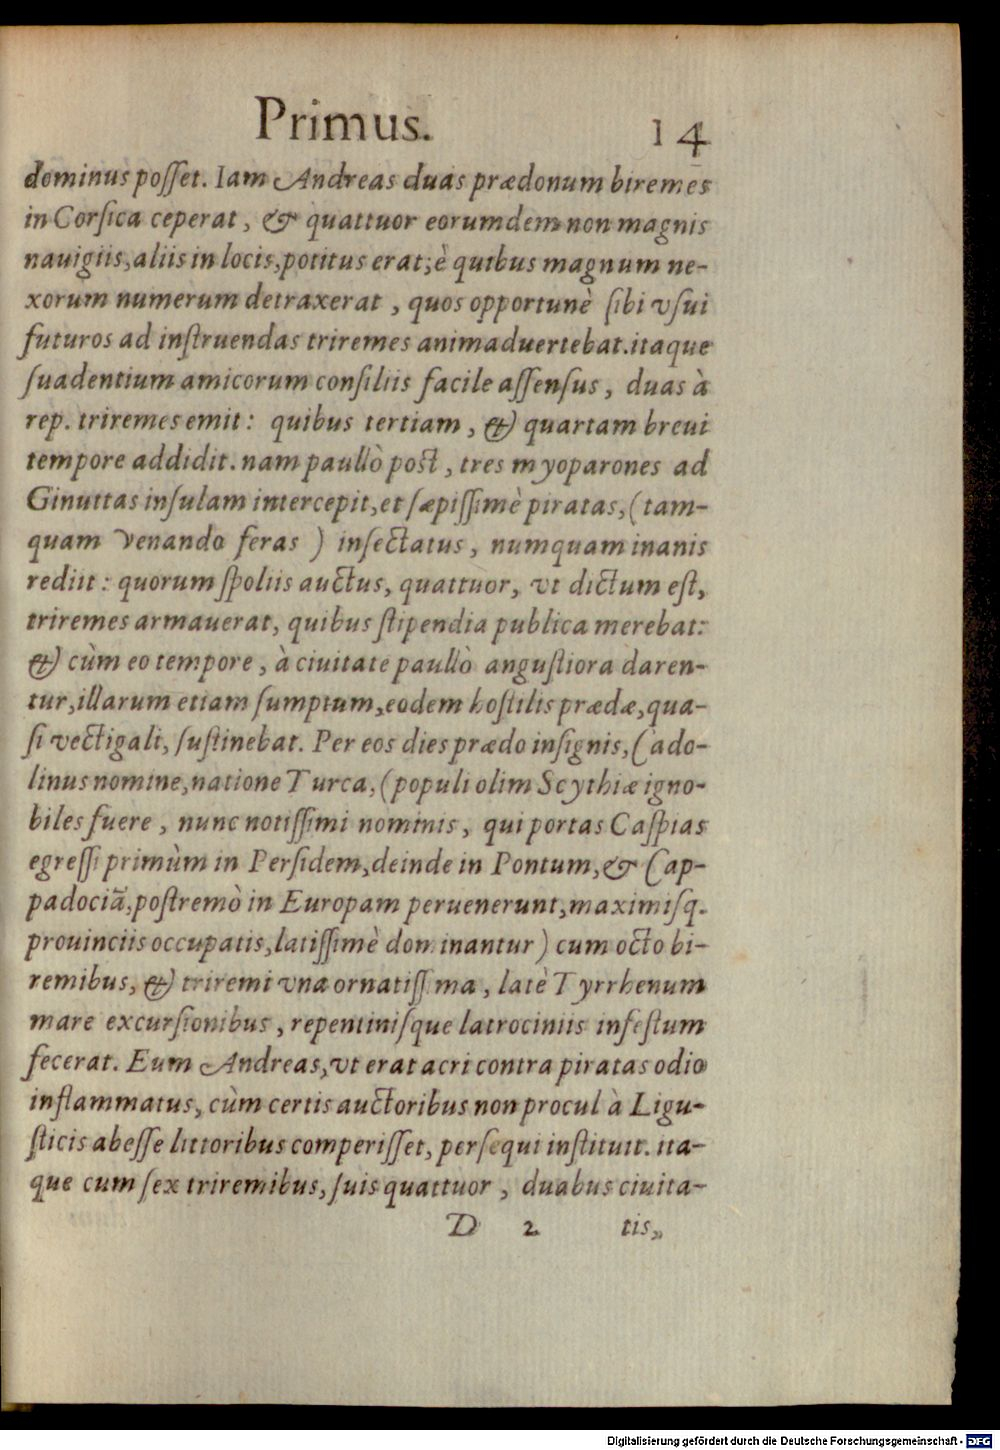 Primus. 14
dominus posſet. Iam Andreas duas prædonum biremes
in Corſica ceperat, & quattuor eorumdem non magnis
nauigiis, aliis in locis, potitus erat; è quibus magnum ne-
xorum numerum detraxerat, quos opportunè ſibi vſui
futuros ad inſtruendas triremes animaduertebat. itaque
ſuadentium amicorum conſiliis facile aſſenſus, duas à
rep. triremes emit: quibus tertiam, & quartam breui
tempore addidit. nam paullò poſt, tres myoparones ad
Ginuttas inſulam intercepit, et ſæpiſſimè piratas, (tam-
quam venando feras) inſectatus, numquam inanis
rediit: quorum ſpoliis auctus, quattuor, vt dictum eſt,
triremes armauerat, quibus ſtipendia publica merebat:
& cùm eo tempore, à ciuitate paullò anguſtiora daren-
tur, illarum etiam ſumptum, eodem hoſtilis prædæ, qua-
ſi vectigali, ſuſtinebat. Per eos dies prædo inſignis, Cado-
linus nomine, natione Turca, (populi olim Scythiæ igno-
biles fuere, nunc notiſſimi nominis, qui portas Caſpias
egreſſi primùm in Perſidem, deinde in Pontum, & Cap-
padociā, poſtremò in Europam peruenerunt, maximiſq.
prouinciis occupatis, latiſſimè dominantur) cum octo bi-
remibus, & triremi vna ornatiſſima, latè Tyrrhenum
mare excurſionibus, repentiniſque latrociniis infeſtum
fecerat. Eum Andreas, vt erat acri contra piratas odio
inflammatus, cùm certis auctoribus non procul à Ligu-
ſticis abeſſe littoribus comperiſſet, perſequi inſtituit. ita-
que cum ſex triremibus, ſuis quattuor, duabus ciuita-
D 2 tis,
Digitalisierung gefördert durch die Deutsche Forschungsgemeinschaft - DFG